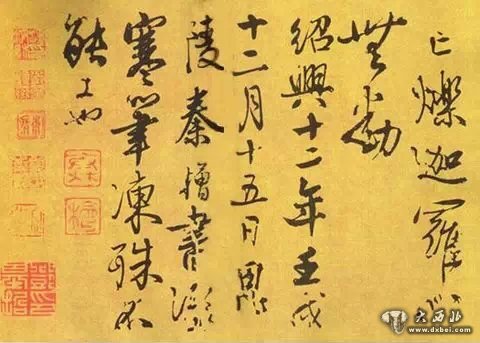 亡爍迦羅心
無動
紹興十二年壬戌
十二月十五日
陵秦檜書
寒筆凍殊不
能工也
大西北
www.dxbei.com